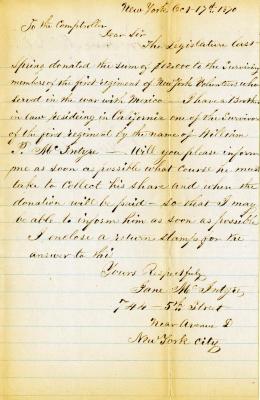 New York, Oct. 17th 1870
To the Comptroller
Dear Sir
The Legislature last
spring donated the sum of $12000 to the Surviving
members of the first regiment of New York Volunteers who
served in the war with Mexico — I have a Brother
in law residing in California one of the Survivors
of the first regiment by the name of William
P. McIntyre — Will you please inform
me as soon as possible what course he must
take to Collect his share and when the
donation will be paid — so that I may
be able to inform him as soon as possible
I enclose a return stamp for the
answer to this
Yours Respectfuly
Jane McIntyre
744 — 5th Street
Near Avenue D
New York City